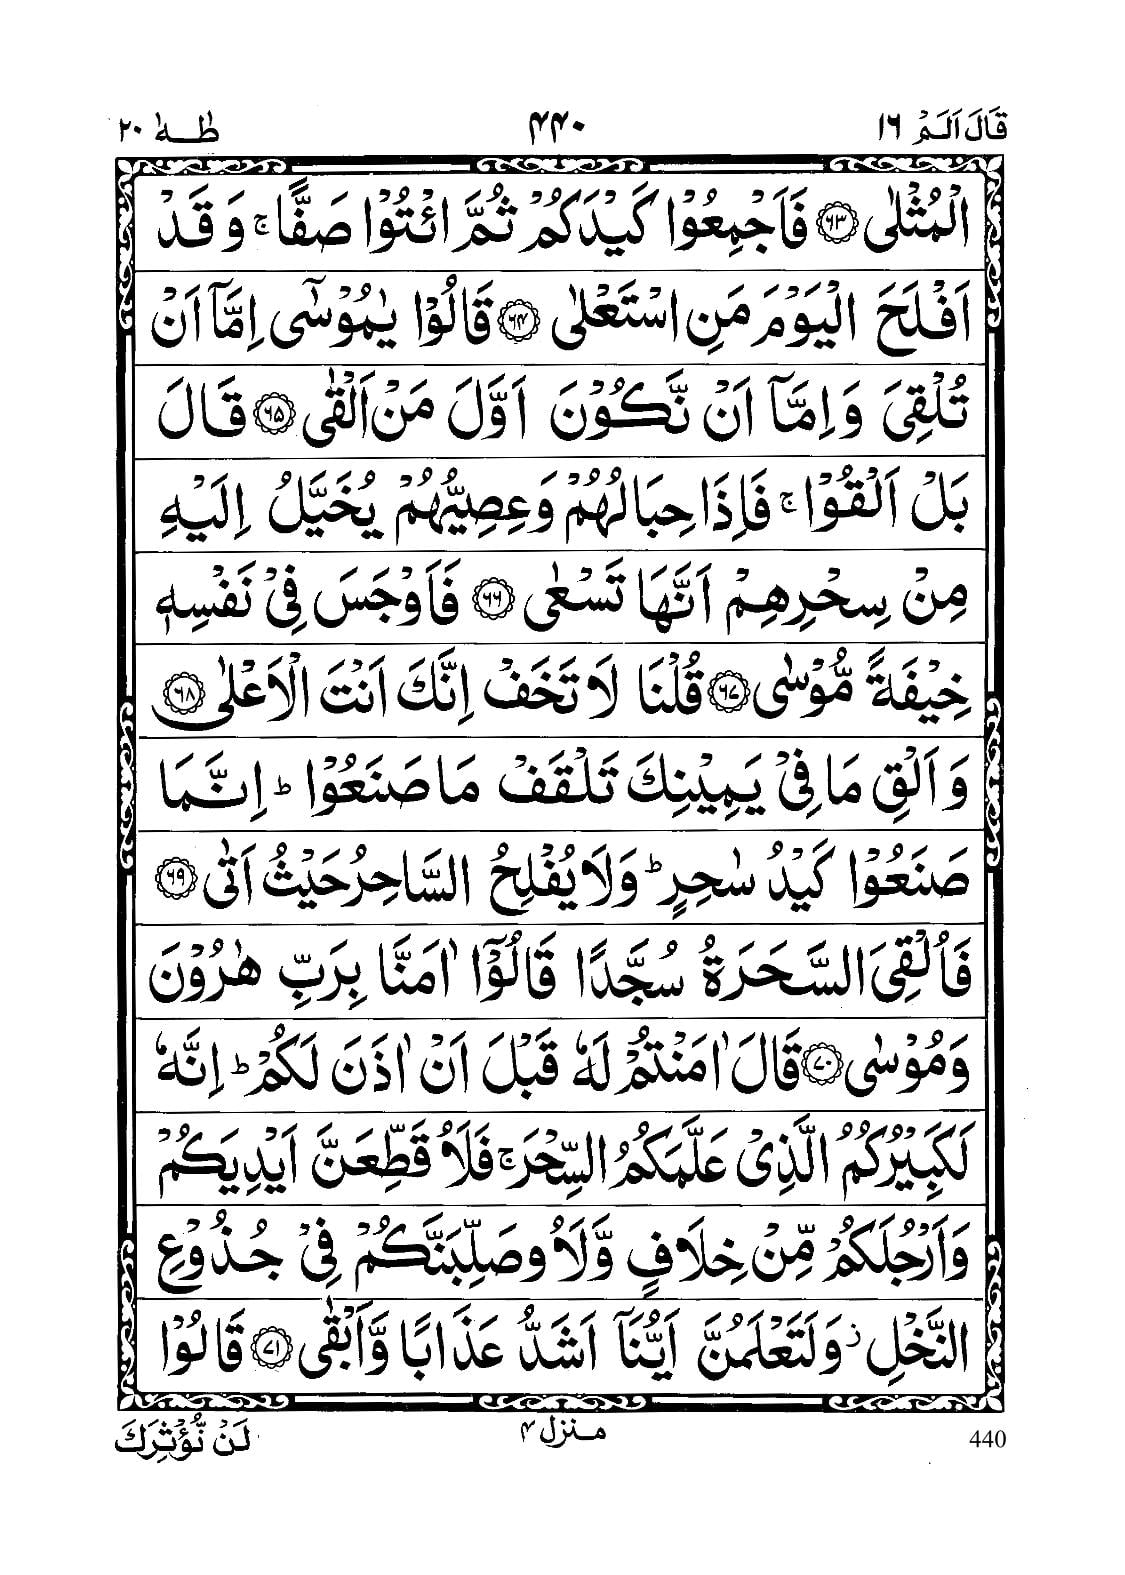 قَالَ اَلَمْ ١٦
۴۴۰
طٰهٰ ٢٠
الْمُثْلٰى ﴿۶۳﴾ فَاَجْمِعُوْا كَيْدَكُمْ ثُمَّ ائْتُوْا صَفًّا ۚ وَقَدْ
اَفْلَحَ الْيَوْمَ مَنِ اسْتَعْلٰى ﴿۶۴﴾ قَالُوْا يٰمُوْسٰٓى اِمَّآ اَنْ
تُلْقِىَ وَاِمَّآ اَنْ نَّكُوْنَ اَوَّلَ مَنْ اَلْقٰى ﴿۶۵﴾ قَالَ
بَلْ اَلْقُوْا ۚ فَاِذَا حِبَالُهُمْ وَعِصِيُّهُمْ يُخَيَّلُ اِلَيْهِ
مِنْ سِحْرِهِمْ اَنَّهَا تَسْعٰى ﴿۶۶﴾ فَاَوْجَسَ فِىْ نَفْسِهٖ
خِيْفَةً مُّوْسٰى ﴿۶۷﴾ قُلْنَا لَا تَخَفْ اِنَّكَ اَنْتَ الْاَعْلٰى ﴿۶۸﴾
وَاَلْقِ مَا فِىْ يَمِيْنِكَ تَلْقَفْ مَا صَنَعُوْا ؕ اِنَّمَا
صَنَعُوْا كَيْدُ سٰحِرٍ ؕ وَلَا يُفْلِحُ السَّاحِرُ حَيْثُ اَتٰى ﴿۶۹﴾
فَاُلْقِىَ السَّحَرَةُ سُجَّدًا قَالُوْٓا اٰمَنَّا بِرَبِّ هٰرُوْنَ
وَمُوْسٰى ﴿۷۰﴾ قَالَ اٰمَنْتُمْ لَهٗ قَبْلَ اَنْ اٰذَنَ لَكُمْ ؕ اِنَّهٗ
لَكَبِيْرُكُمُ الَّذِىْ عَلَّمَكُمُ السِّحْرَ ۚ فَلَاُقَطِّعَنَّ اَيْدِيَكُمْ
وَاَرْجُلَكُمْ مِّنْ خِلَافٍ وَّلَاُوصَلِّبَنَّكُمْ فِىْ جُذُوْعِ
النَّخْلِ ز وَلَتَعْلَمُنَّ اَيُّنَآ اَشَدُّ عَذَابًا وَّاَبْقٰى ﴿۷۱﴾ قَالُوْا
لَنْ نُّؤْثِرَكَ
منزل ۴
440